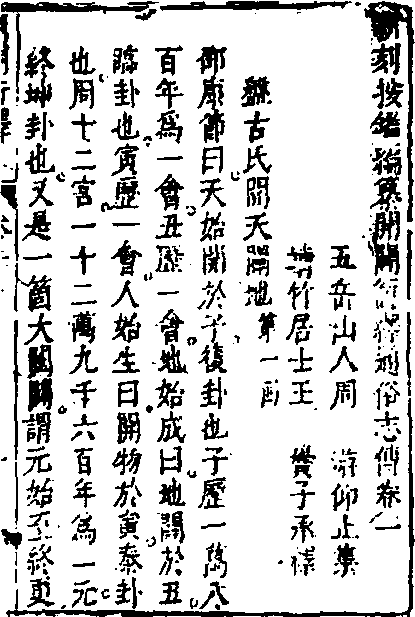 新刻按鑑編纂開闢衍繹通俗志傳卷一
五岳山人周　游仰止集
靖竹居士王　黌子承釋
盤古氏開天闢地　第一回
邵康節曰天始開於子復卦也子歷一萬八
百年爲一會丑歷一會地始成曰地闢於丑
臨卦也寅歷一會人始生曰開物於寅泰卦
也周十二宮一十二萬九千六百年爲一元
終坤卦也又是一箇大開闢謂元始至終更